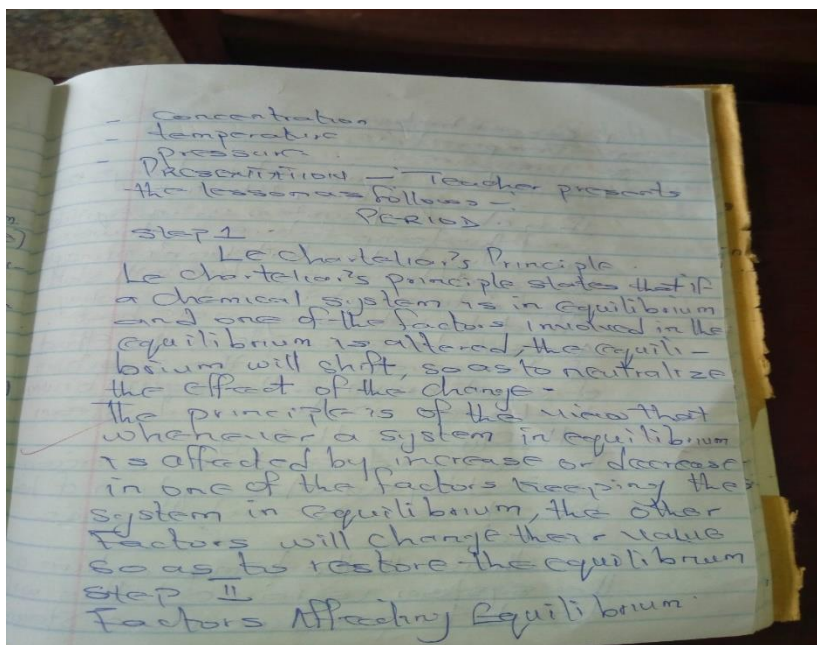 - Concentration
- temperature
- Pressure.
PRESENTATION - Teacher presents
the lesson as follows -
PERIOD
Step 1
Le chartelier's Principle
Le chartelier's principle states that if
a chemical system is in equilibrium
and one of the factors involved in the
equilibrium is altered, the equili-
brium will shift, so as to neutralize
the effect of the change-
The principle is of the view that
whenever a system in equilibrium
is affected by increase or decrease
in one of the factors keeping the
system in equilibrium, the other
Factors will change their value
so as to restore the equilibrium
Step II
Factors Affecting Equilibrium.